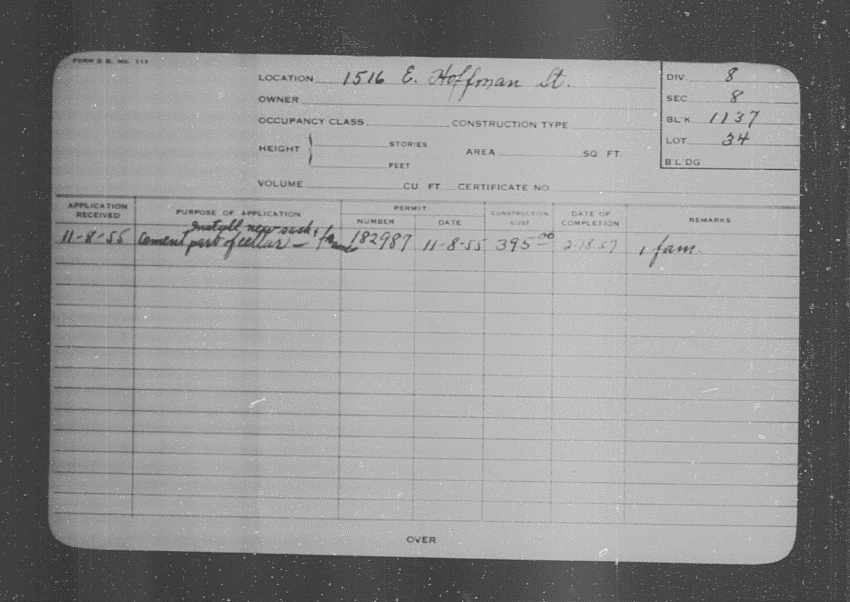 FORM S. B. NO. 111
LOCATION 1516 E. Hoffman St.
OWNER
OCCUPANCY CLASS CONSTRUCTION TYPE
HEIGHT STORIES
FEET
AREA SQ FT
VOLUME CU. FT. CERTIFICATE NO
DIV. 8
SEC 8
BL'K 1137
LOT 34
BL'DG
APPLICATION RECEIVED PURPOSE OF APPLICATION PERMIT NUMBER DATE CONSTRUCTION COST DATE OF COMPLETION REMARKS
Install new sash &
11-8-55 Cement part of cellar - frame 182987 11-8-55 395.00 2-18-57 1 fam.
OVER